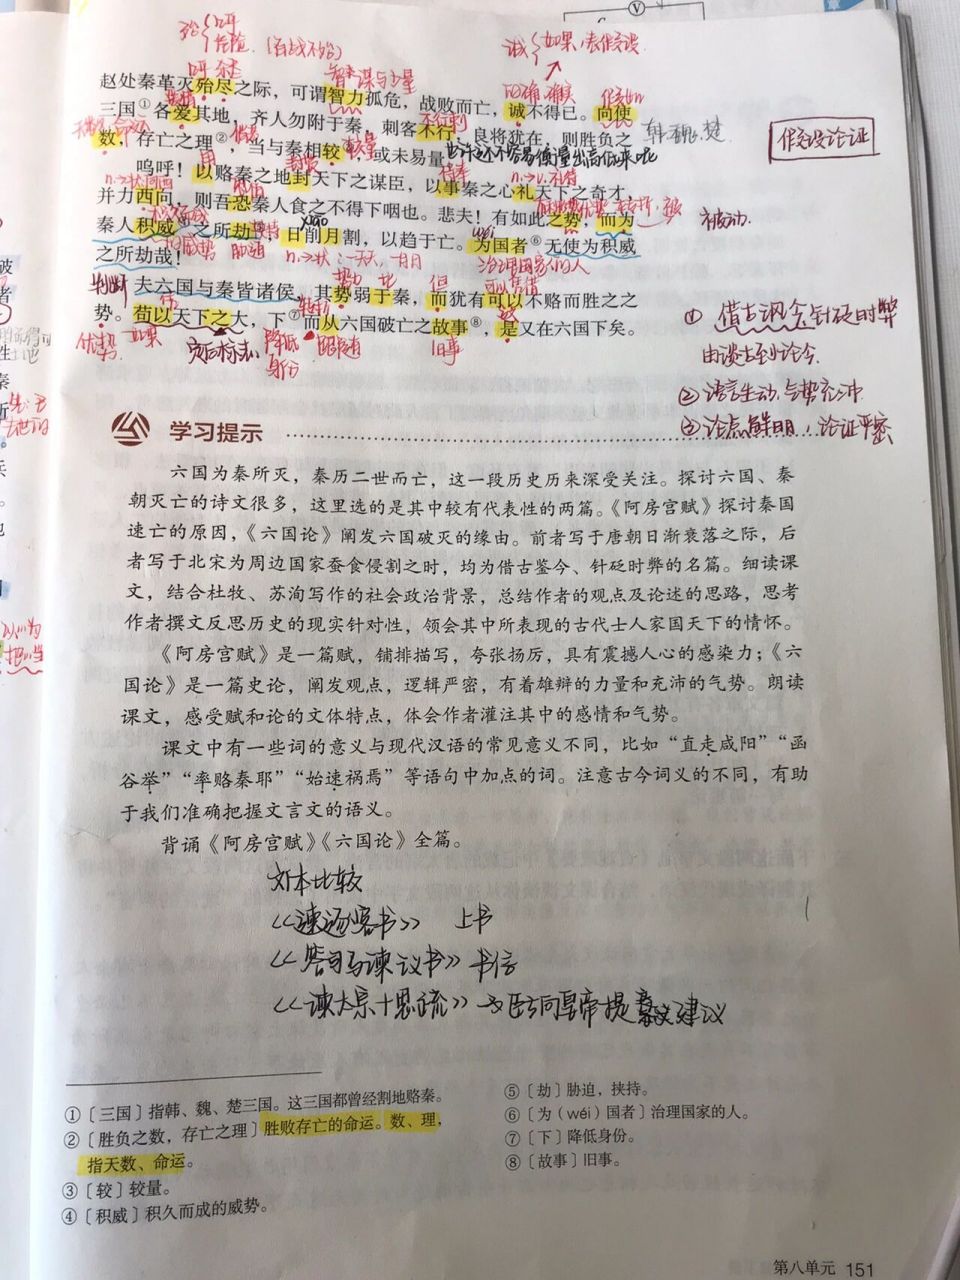 殆
(百战不殆)
诚 如果,表假设
赵处秦革灭殆尽之际，可谓智力孤危，战败而亡，诚不得已。向使
三国①各爱其地，齐人勿附于秦，刺客不行，良将犹在，则胜负之
韩、魏、楚
假设论证
数，存亡之理②，当与秦相较③，或未易量。
呜呼！以赂秦之地封天下之谋臣，以事秦之心礼天下之奇才，
并力西向，则吾恐秦人食之不得下咽也。悲夫！有如此之势，而为
被动
秦人积威④之所劫⑤，日削月割，以趋于亡。为国者⑥无使为积威
之所劫哉！
治理国家的人
判断
夫六国与秦皆诸侯，其势弱于秦，而犹有可以不赂而胜之之
势。苟以天下之大，下⑦而从六国破亡之故事⑧，是又在六国下矣。
优势 如果 降低身份 跟随 旧事
① 借古讽今,针砭时弊
由谈古到论今
② 语言生动,气势充沛
③ 论点鲜明,论证严密
学习提示
六国为秦所灭，秦历二世而亡，这一段历史历来深受关注。探讨六国、秦
朝灭亡的诗文很多，这里选的是其中较有代表性的两篇。《阿房宫赋》探讨秦国
速亡的原因，《六国论》阐发六国破灭的缘由。前者写于唐朝日渐衰落之际，后
者写于北宋为周边国家蚕食侵割之时，均为借古鉴今、针砭时弊的名篇。细读课
文，结合杜牧、苏洵写作的社会政治背景，总结作者的观点及论述的思路，思考
作者撰文反思历史的现实针对性，领会其中所表现的古代士人家国天下的情怀。
《阿房宫赋》是一篇赋，铺排描写，夸张扬厉，具有震撼人心的感染力；《六
国论》是一篇史论，阐发观点，逻辑严密，有着雄辩的力量和充沛的气势。朗读
课文，感受赋和论的文体特点，体会作者灌注其中的感情和气势。
课文中有一些词的意义与现代汉语的常见意义不同，比如“直走咸阳”“函
谷举”“率赂秦耶”“始速祸焉”等语句中加点的词。注意古今词义的不同，有助
于我们准确把握文言文的语义。
背诵《阿房宫赋》《六国论》全篇。
文本比较
《谏逐客书》 上书
《答司马谏议书》书信
《谏太宗十思疏》→臣向皇帝提意见建议
①〔三国〕指韩、魏、楚三国。这三国都曾经割地赂秦。
②〔胜负之数，存亡之理〕胜败存亡的命运。数、理，
指天数、命运。
③〔较〕较量。
④〔积威〕积久而成的威势。
⑤〔劫〕胁迫，挟持。
⑥〔为（wéi）国者〕治理国家的人。
⑦〔下〕降低身份。
⑧〔故事〕旧事。
第八单元 151